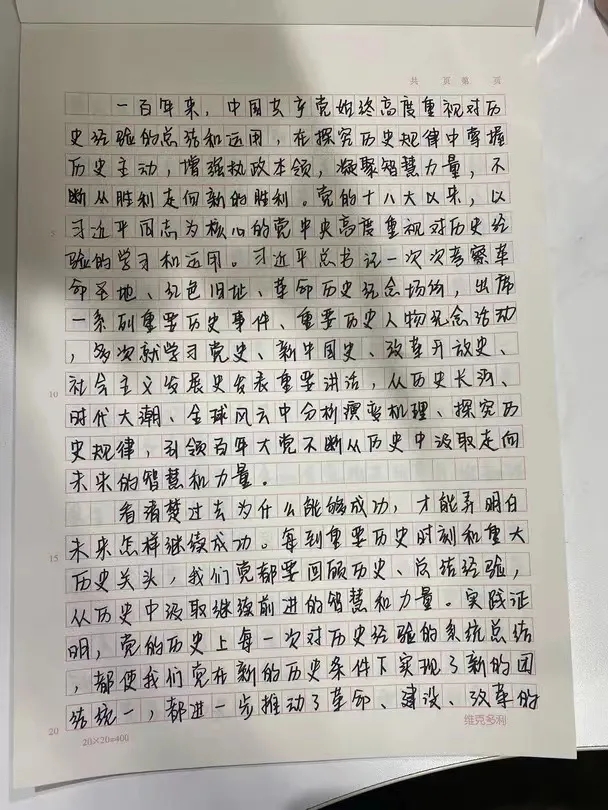 共 页 第 页
一百年来，中国共产党始终高度重视对历
史经验的总结和运用，在探究历史规律中掌握
历史主动，增强执政本领，凝聚智慧力量，不
断从胜利走向新的胜利。党的十八大以来，以
习近平同志为核心的党中央高度重视对历史经
5
验的学习和运用。习近平总书记一次次考察革
命圣地、红色旧址、革命历史纪念场所，出席
一系列重要历史事件、重要历史人物纪念活动
，多次就学习党史、新中国史、改革开放史、
社会主义发展史发表重要讲话，从历史长河、
10
时代大潮、全球风云中分析演变机理、探究历
史规律，引领百年大党不断从历史中汲取走向
未来的智慧和力量。
看清楚过去为什么能够成功，才能弄明白
未来怎样继续成功。每到重要历史时刻和重大
15
历史关头，我们党都要回顾历史、总结经验，
从历史中汲取继续前进的智慧和力量。实践证
明，党的历史上每一次对历史经验的系统总结
，都使我们党在新的历史条件下实现了新的团
结统一，都进一步推动了革命、建设、改革的
20
20×20=400
维克多利